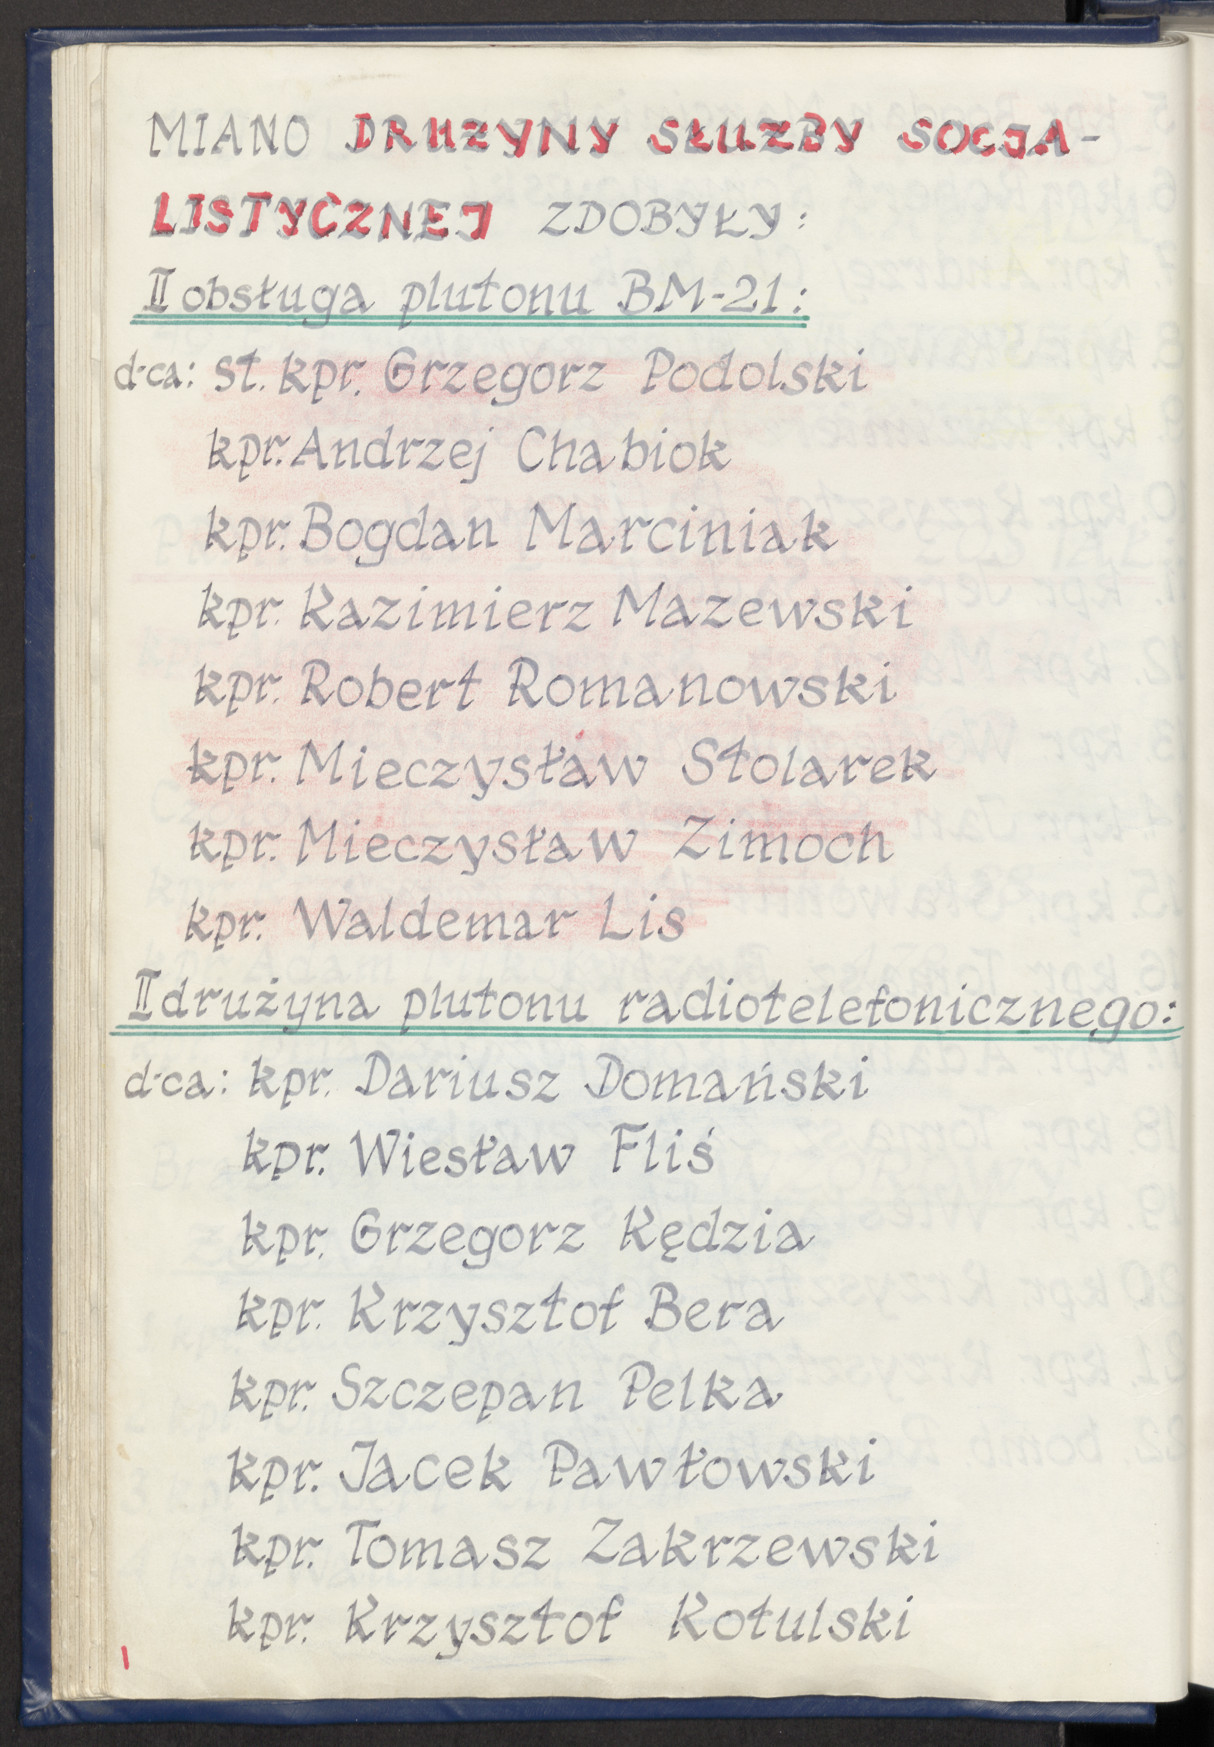 MIANO DRUŻYNY SŁUŻBY SOCJA-
LISTYCZNEJ ZDOBYŁY:
II obsługa plutonu BM-21:
d-ca: st. kpr. Grzegorz Podolski
kpr. Andrzej Chabiok
kpr. Bogdan Marciniak
kpr. Kazimierz Mazewski
kpr. Robert Romanowski
kpr. Mieczysław Stolarek
kpr. Mieczysław Zimoch
kpr. Waldemar Lis
II drużyna plutonu radiotelefonicznego:
d-ca: kpr. Dariusz Domański
kpr. Wiesław Fliś
kpr. Grzegorz Kędzia
kpr. Krzysztof Bera
kpr. Szczepan Pelka
kpr. Jacek Pawłowski
kpr. Tomasz Zakrzewski
kpr. Krzysztof Kotulski